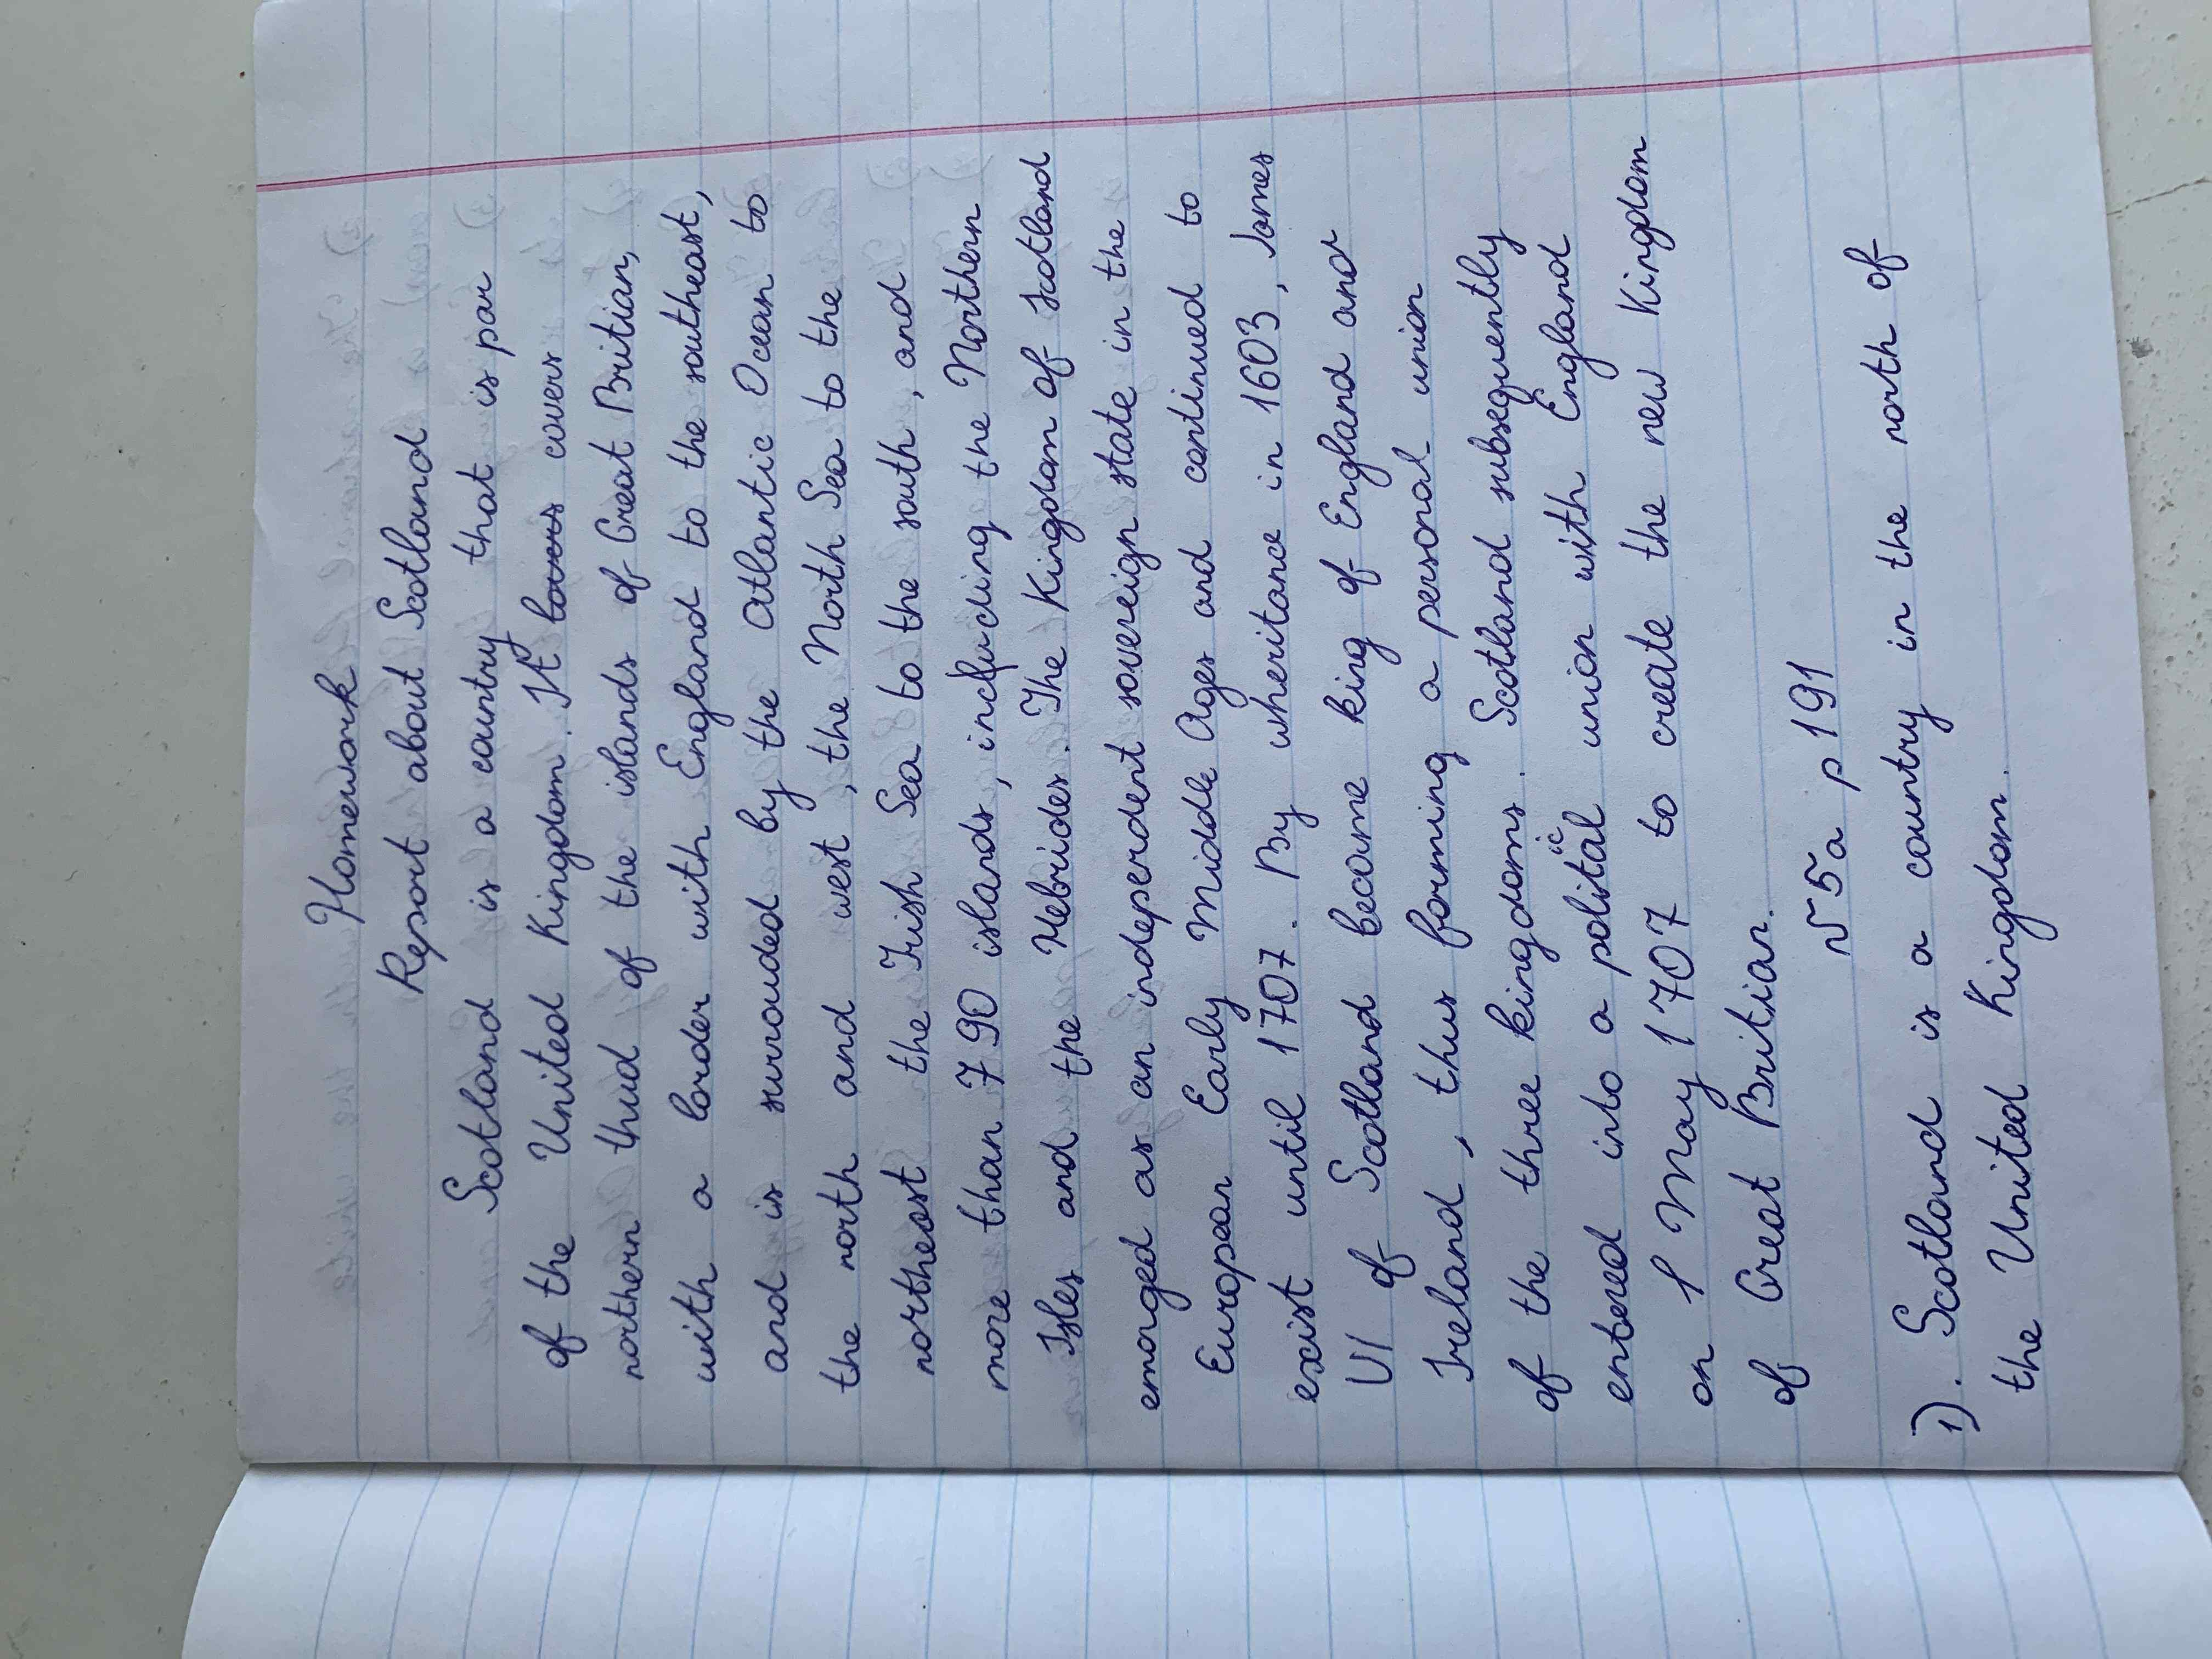 Homework
Report about Scotland
Scotland is a country that is par
of the United Kingdom. It covers covers
northern thud of the islands of Great Britian,
with a border with England to the southeast,
and is surrouded by the Atlantic Ocean to
the north and west, the North Sea to the
northeast the Irish Sea to the south, and
more than 790 islands, including the Northern
Isles and the Hebrides. The Kingdom of Scotland
emorged as an independent sovereign state in the
European Early Middle Ages and continued to
exist until 1707. By inheritance in 1603, James
VI of Scotland became king of England and
Ireland, thus forming a personal union
of the three kingdoms. Scotland subsequently
entered into a political union with England
on 1 May 1707 to create the new Kingdom
of Great Britian.
N 5a p 191
1). Scotland is a country in the north of
the United Kingdom.